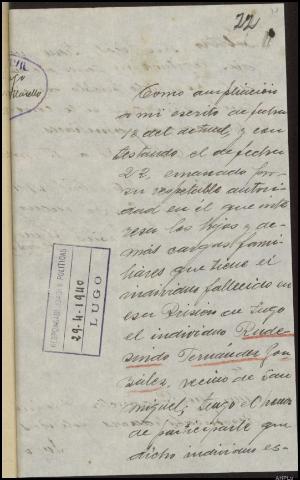 22
Como ampliación
a mi escrito de fecha
18 del actual, y con
testando el de fecha
22, emanado por
su respetable autori
dad en el que inte
resa los hijos y de-
más cargas fami
liares que tiene el
individuo fallecido en
esa Prision de Lugo
el individuo Rude-
sindo Fernández Gon
zález, vecino de San
Miguel, tengo el honor
de participarle que
dicho individuo es-
RESPONSABILIDADES POLITICAS
29-4-1940
LUGO